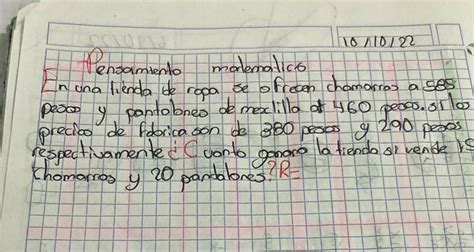 10/10/22
Pensamiento matematico
En una tienda de ropa se ofrecen chamarras a 585
pesos y pantalones de mezclilla at 460 pesos. si los
precios de fabrica son de 380 pesos y 290 pesos
respectivamente ¿Cuanto ganara la tienda si vende 15
chamarras y 20 pantalones? R=